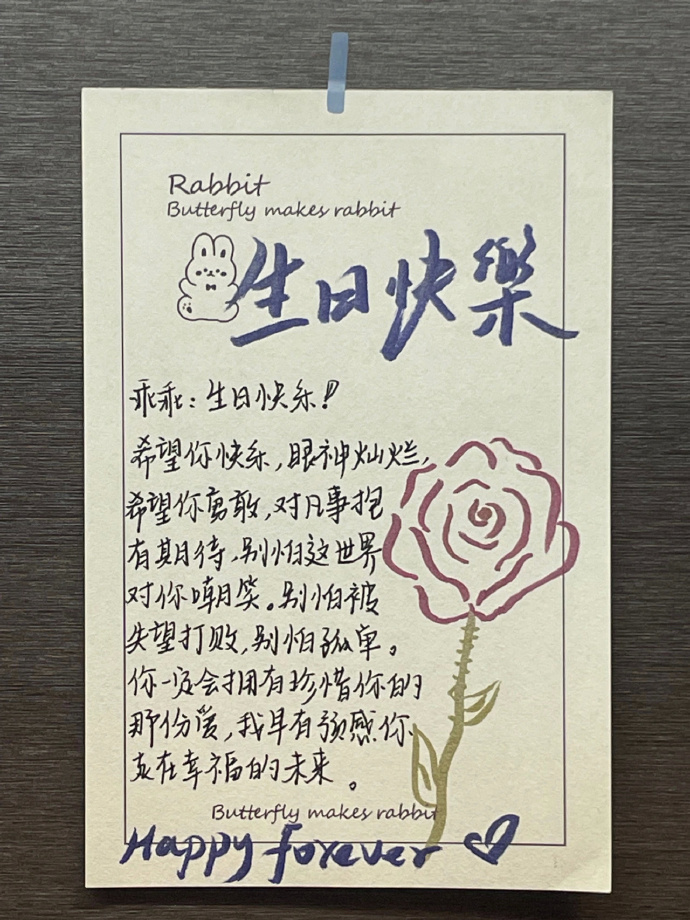 Rabbit
Butterfly makes rabbit
生日快樂
乖乖：生日快乐！
希望你快乐，眼神灿烂，
希望你勇敢，对凡事抱
有期待，别怕这世界
对你嘲笑。别怕被
失望打败，别怕孤单。
你一定会拥有珍惜你的
那份爱，我早有预感你
走在幸福的未来。
Butterfly makes rabbit
Happy forever